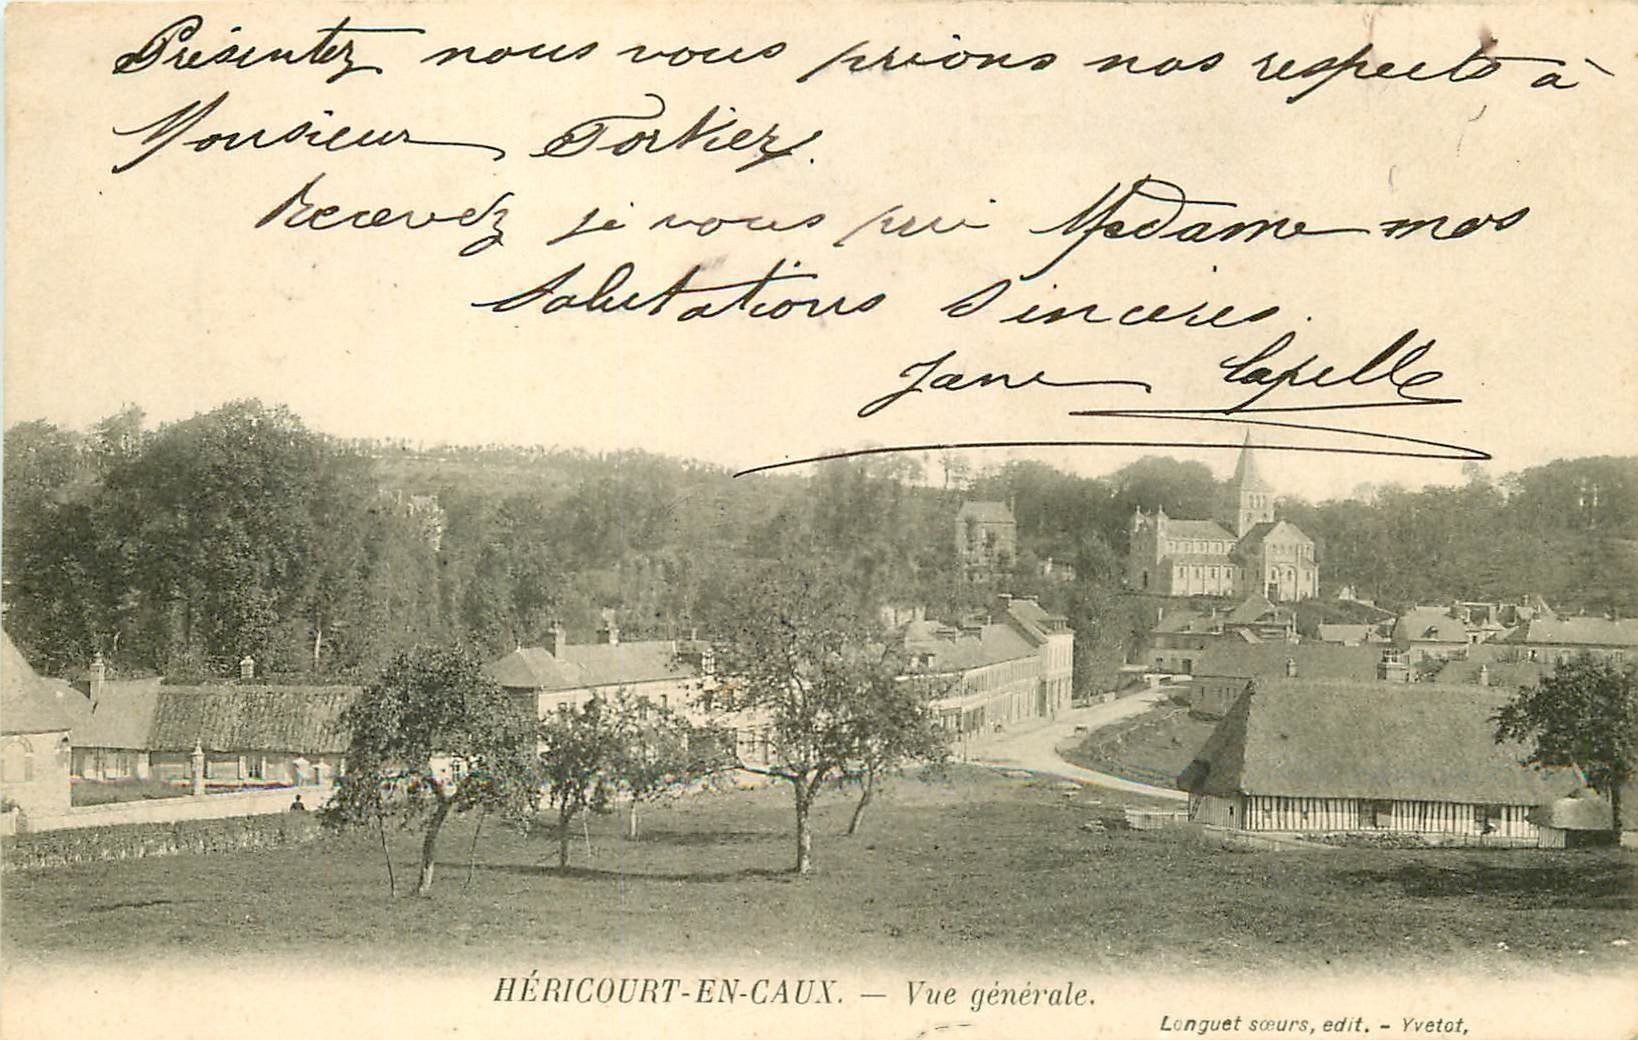 Présentez nous vous prions nos respects à
Monsieur Tortiez.
Recevez je vous prie Madame mes
Salutations Sincères.
Jane Capelle
HÉRICOURT-EN-CAUX. — Vue générale.
Longuet sœurs, edit. - Yvetot,